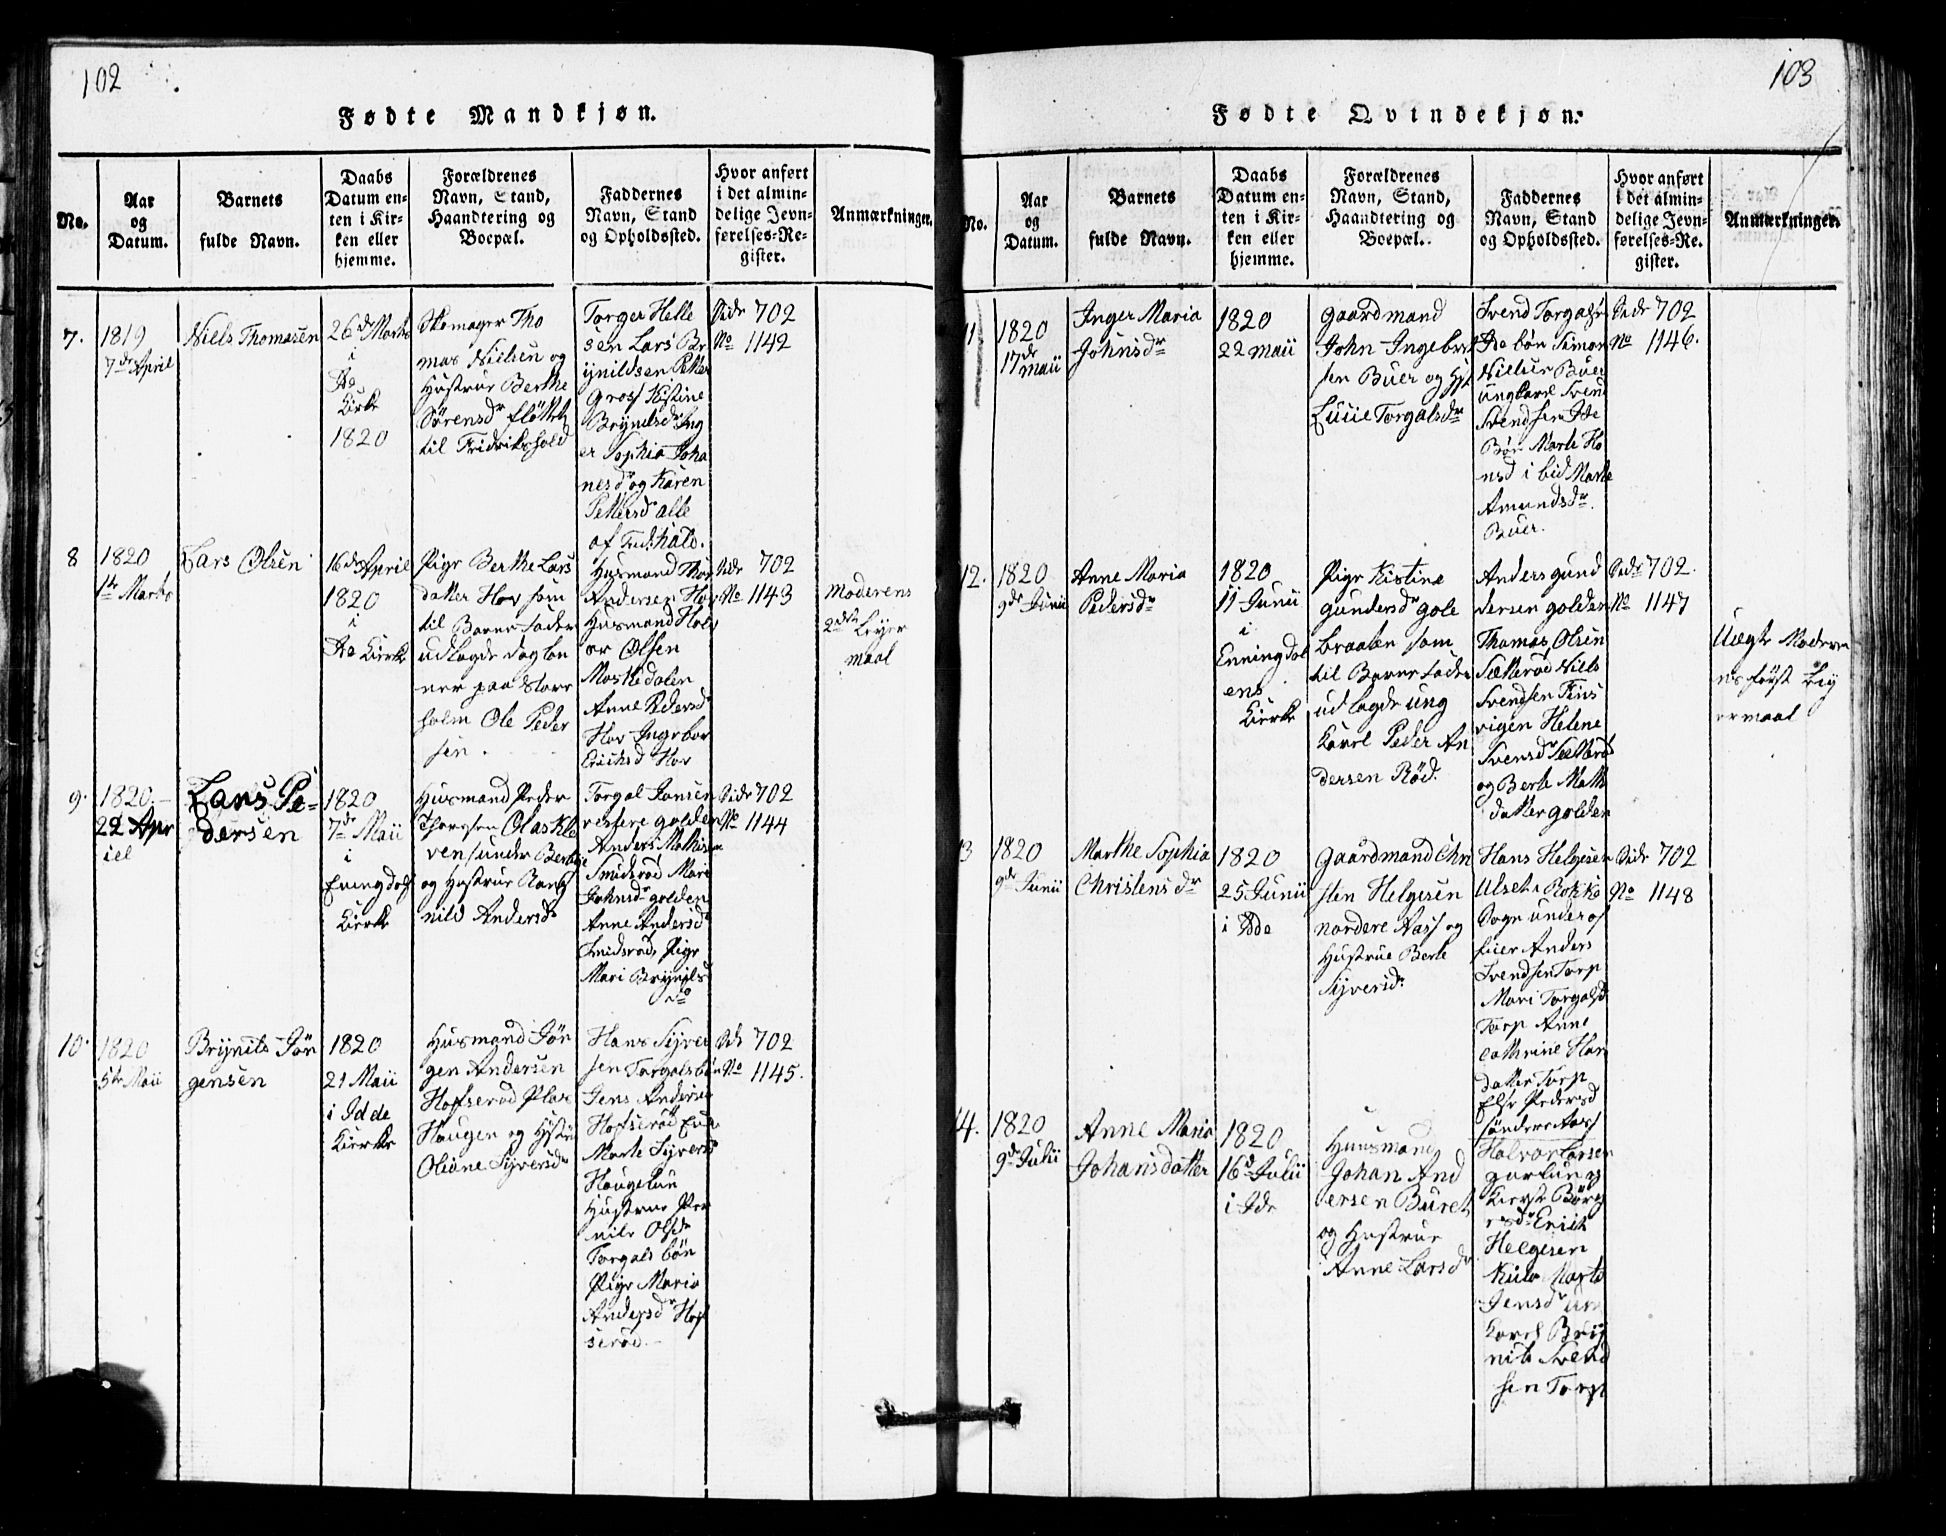 102
Fødte Mandkjøn.
No.
Aar
og
Datum.
Barnets
fulde Navn.
Daabs
Datum en-
ten i Kir-
ken eller
hjemme.
Forældrenes
Navn, Stand,
Haandtering og
Boepæl.
Faddernes
Navn, Stand
og Opholdssted.
Hvor anført
i det almin-
delige Jevn-
førelses-Re-
gister.
Anmærkninger.
7.
1819
7de April
Niels Thomasen
26de Marts
i
Kirke
1820
Skomager Tho
mas Nielsen og
Hustrue Berthe
Sørensdr fløttet
til Fridrikshold
Torger Helle
sen Lars Br
ynildsen Petter
Gross Kistine
Brynilsdr Ing
er Sophia Joha
nesdr og Karen
Pettersdr alle
af Fridhald.
Side 702
No 1142
8
1820
1te Marts
Lars Olsen
16de April
1820
i
Kirke
Pige Berthe Lars
datter Hov som
til Barnefader
udlagde dagløn
ner paa Stor
holm Ole Peder
sen.
Husmand Thor
Andersen Hov
Husmand Halv
or Olsen
Moskedalen
Anne Pedersdr
Hov Ingebor
Erichsd Hov
Side 702
No 1143
Moderens
2den Leyer
maal
9.
1820
22 Apr
iel
Lars Pe-
dersen
1820
7de Maii
i
Eningdals
Kirke
Husmand Peder
Olaskle
ven under Berbye
og Hustrue Rang
nild Andersdr
Torgal Jansen
vestere golden
Anders Mathisen
Smidsrød Mari
Johnsdr golden
Anne Andersd
Smidsrød, Pige
Mari Brynils
dr
Side 702
No 1144
10.
1820
5te Maii
Brynils Jør
gensen
1820
21 Maii
i Idde
Kierke
Husmand Jør
gen Andersen
Hofserød Plas
Haugen og Hustru
Oliane Syversdr
Hans Syver
sen Torgalsbøn
Jens Andersen
Hofserød
Marte Syversd
Haugelun
Hustrue Per
nile Olsdr
Torgals bøn
Pige Maria
Andersdr Hof
serød.
Side 702
No 1145.
103
Fødte Qvindekjøn.
No.
Aar
og
Datum.
Barnets
fulde Navn.
Daabs
Datum en-
ten i Kir-
ken eller
hjemme.
Forældrenes
Navn, Stand,
Haandtering og
Boepæl.
Faddernes
Navn, Stand
og Opholdssted.
Hvor anført
i det almin-
delige Jevn-
førelses-Re-
gister.
Anmærkninger.
11
1820
17de
maii
Inger Maria
Johnsdr
1820
22 maii
Gaardmand
John Ingebret
sen Buer og Hst
Lucie Torgalsdr
Svend Torgals
bøn Simon
Nielsen Buer
ungkarl Sven
Svendsen Ide
Bøn Marte Ha
nsd i bid Marte
Amundsdr
Buer.
Side 702
No 1146.
12.
1820
9de Junii
Anne Maria
Pedersdr
1820
11 Junii
i
Enningdal
ens
Kierke
Pige Kistine
Gundersdr gole
braaten som
til Barnefader
udlagde ung
Karl Peder An
dersen Rød.
Anders gund
dersen golden
Thomas Olsen
Sætterød Niels
Svendsen
vigen Helene
Svensdr Sætterød
og Berte Math
datter golden
Side 702.
No 1147
Uægte Modere
ns først Ley
ermaal
13
1820
9de Junii
Marthe Sophia
Christensdr
1820
25 Junii
i Idde
Gaardmand Chri
sten Helgesen
nordere Aass og
Hustrue Berte
Syversdr
Hans Helgesen
Ulset i Rokke
Sogn underof
fiser Anders
Svendsen Torp
Mari Torgalsdr
Torp Anne
Cathrine Han
datter Torp
Else Pedersd
søndere Aass
Side 702
No 1148
14.
1820
9de Julii
Anne Maria
Johansdatter
1820
16de Julii
i Ide
Huusmand
Johan And
ersen Buret
og Hustrue
Anne Larsdr
Halvor Larsen
og
Kierste Børg
esdr Erich
Helgesen
Marte
Jensdr un
Karl Bryn
nils Svend
sen Torp